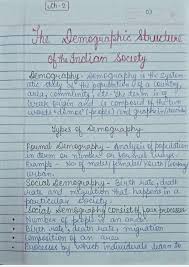 ch-2
The Demographic Structure
of the Indian Society
Demography - Demography is the system
atic study of the population of a country,
area, community etc. The term is of
Greek origin and is composed of the two
words 'demos' (people) and graphein (
Types of Demography
Formal Demography - Analysis of population
in term or number or
Example - No of males, females, youth,
urban.
Social Demography - Birth rate, death
rate and migration that happens in a
particular society.
Social Demography consist of four processes
Number of people in an area.
Birth rate, death rate, migration
Composition of an area
Processes by which individuals